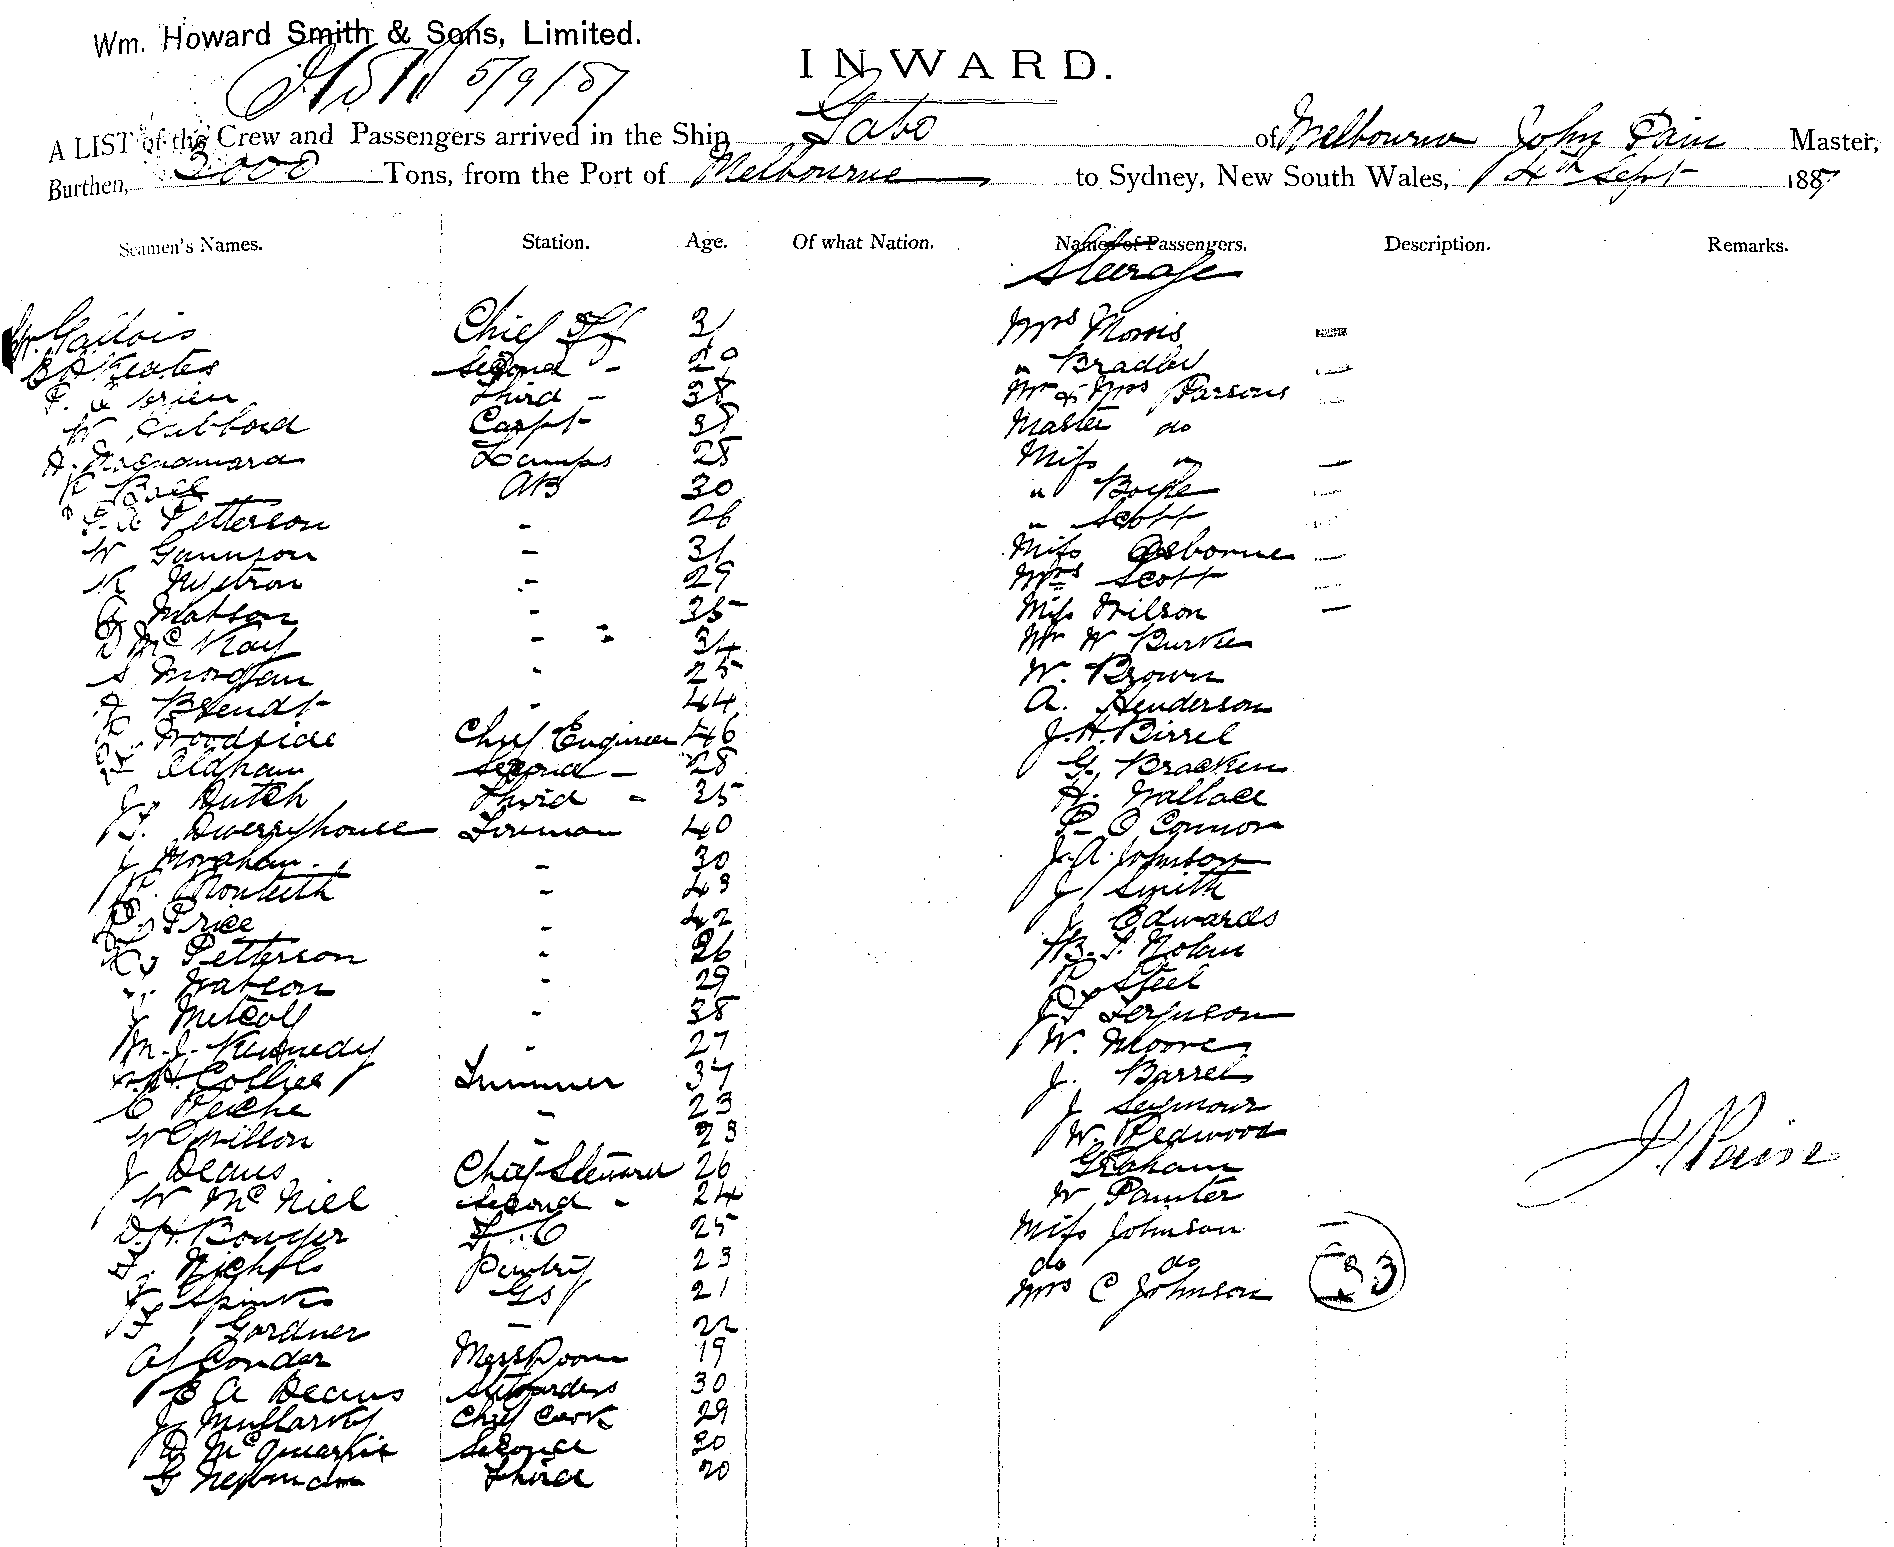 Wm. Howard Smith & Sons, Limited.
5/9/87
INWARD.
A LIST of the Crew and Passengers arrived in the Ship Gabo of Melbourne John Pain Master,
Burthen, 3000 Tons, from the Port of Melbourne to Sydney, New South Wales, 4th Sept 1887
Seamen's Names. Station. Age. Of what Nation. Names of Passengers. Description. Remarks.
Steerage
Gallois Chief Off 31 Mrs Morris
Keates Second - " Bradley
P. O'Brien Third - 38 Mr & Mrs Parsons
W Hubbard Carpt 38 Master do
H. Macnamara Lamps 28 Miss "
Ball AB 30 " Boyle
Petterson - 26 " Scott
W Gannson - 31 Miss Osborne
Nystrom - 29 Mrs Scott
Matson - 35 Miss Wilson
D McKay - 34 Mr W Burke
S Morgan - 25 W. Brown
Brendt - 44 A. Henderson
Woodside Chief Engineer 46 J.H. Birrel
Oldham Second - 28 G. Bracken
J. Dutch Third - 35 H. Wallace
Dwerryhouse Foreman 40 P. O Connor
J Monahan - 30 J.A. Johnson
Monteith - 43 J Smith
Price - 42 J Edwards
Petterson - 26 Nolan
Watson - 29 R Steel
J Metcalf - 38 Ferguson
M.J. Kennedy - 27 W. Moore
Collier Trimmer 37 J. Barrel
C Reiche - 23 J Seymour
W Dillon - 23 W. Redwood
J Deans Chief Steward 26 Graham
W McNiel Second - 24 W Painter
D.H. Bowyer 25 Miss Johnson
Nicholls Pantry 23 do do
Spinks GS 21 Mrs C Johnson 33
F Gardner - 22
A J Conder Mess Room 19
E A Deans Stewardess 30
J Mullarky Chief Cook 29
D McQuarrie Second 20
G Newman Third 20
J. Paine